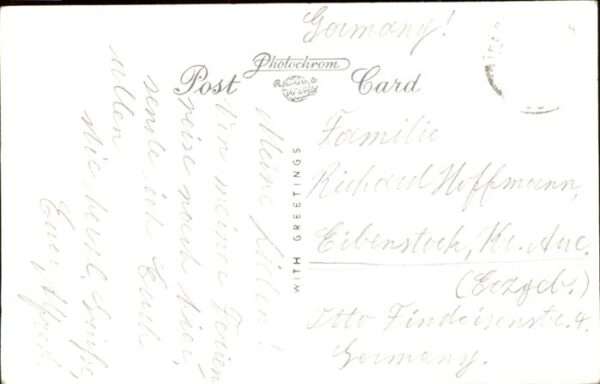 Germany!
Photochrom
Post Card
WITH GREETINGS
Familie
Richard Hoffmann,
Eibenstock, Kr. Aue.
(Erzgeb.)
Otto Findeisenstr. 4.
Germany.
Meine Lieben!
Von meiner Ferien
reise nach hier,
sende ich Euch
allen
die herzl. Grüße,
Euer Alfred.